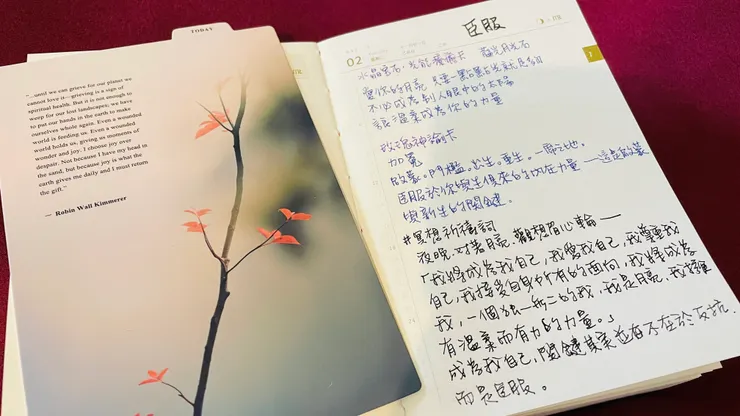 TODAY
"...until we can grieve for our planet we
cannot love it—grieving is a sign of
spiritual health. But it is not enough to
weep for our lost landscapes; we have
to put our hands in the earth to make
ourselves whole again. Even a wounded
world is feeding us. Even a wounded
world holds us, giving us moments of
wonder and joy. I choose joy over
despair. Not because I have my head in
the sand, but because joy is what the
earth gives me daily and I must return
the gift."
— Robin Wall Kimmerer
臣服
02
水晶寶石光能療癒卡 藍光月光石
當你的月亮,只要一點點光就足夠
不必成為別人眼中的太陽
讓溫柔成為你的力量
玫瑰神諭卡
加冕
啟蒙。門檻。於生。重生。
臣服於你與生俱來的內在力量——這是啟蒙
與新生的關鍵。
#冥想祈禱詞
夜晚,對著月亮,觀想眉心輪——
「我將成為我自己,我愛我自己,我尊重我
自己,我接受自身中所有的面向,我將成為
我,一個獨一無二的我,我是月亮,我擁
有溫柔而有力的力量。」
成為我自己,關鍵其實並不在於反抗,
而是臣服。